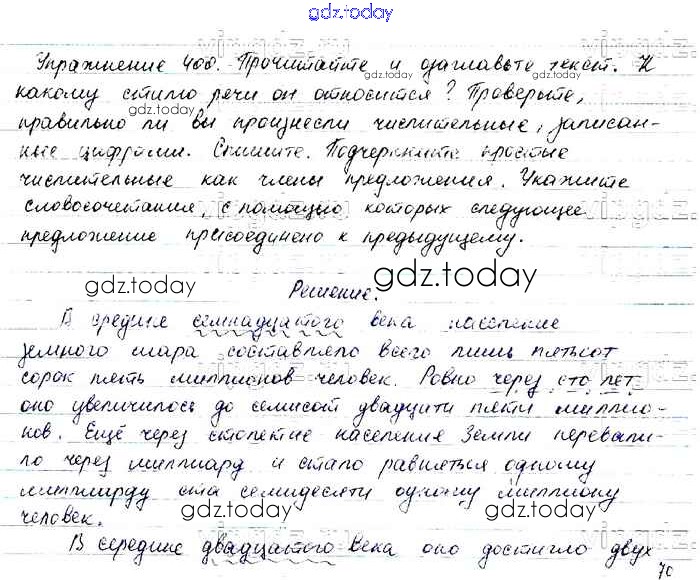 gdz.today
Упражнение 400. Прочитайте и озаглавьте текст. К
gdz.today
какому стилю речи он относится? Проверьте,
gdz.today
правильно ли вы произнесли числительные, записан-
ные цифрами. Спишите. Подчеркните простые
числительные как члены предложения. Укажите
словосочетания, с помощью которых следующее
gdz.today
предложение присоединено к предыдущему.
gdz.today
gdz.today
Решение.
В средине семнадцатого века население
земного шара составляло всего лишь пятьсот
сорок пять миллионов человек. Ровно через сто лет
оно увеличилось до семисот двадцати пяти миллио-
нов. Ещё через столетие население Земли перевали-
ло через миллиард и стало равняться одному
миллиарду ста семидесяти одному миллиону
человек.
gdz.today
gdz.today
В середине двадцатого века оно достигло двух
gdz.today
70